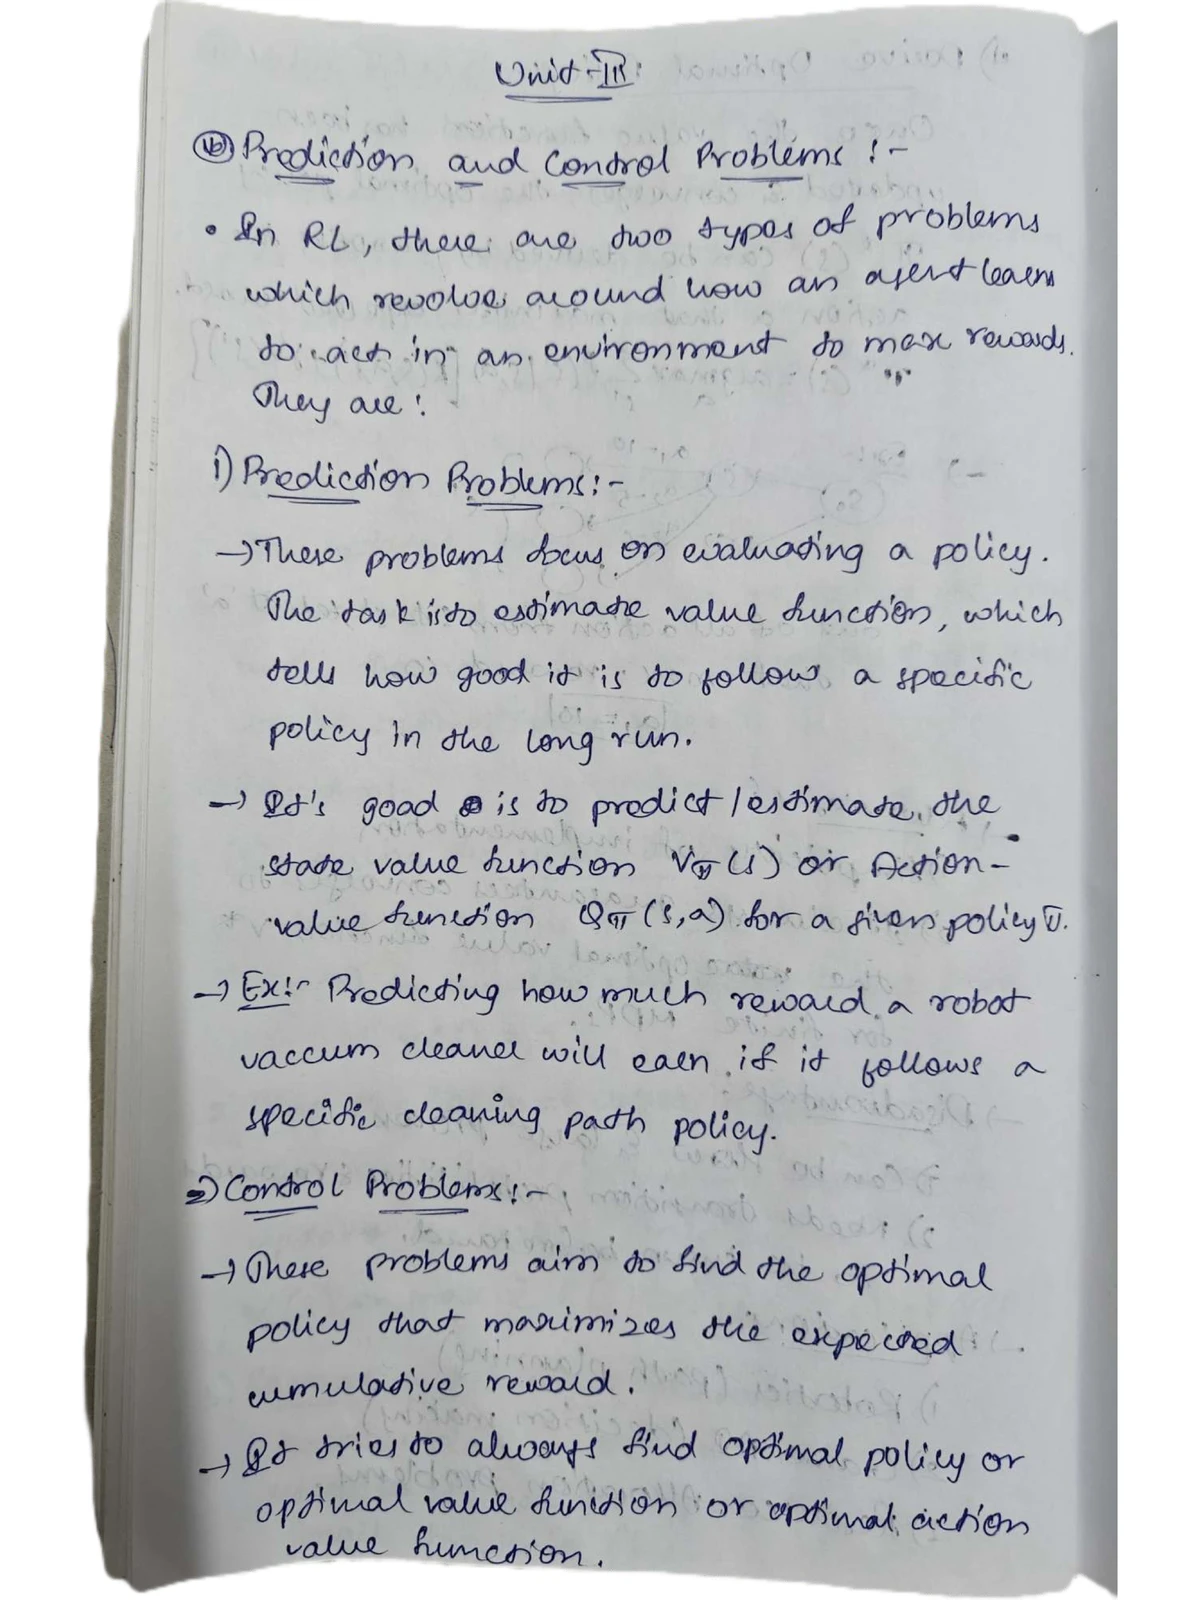 Unit-III
(b) Prediction and Control Problems :-
• In RL, there are two types of problems
which revolve around how an agent learns
to act in an environment to max rewards.
They are :
i) Prediction Problems:-
→ These problems focus on evaluating a policy.
The task is to estimate value function, which
tells how good it is to follow a specific
policy in the long run.
→ It's good is to predict/estimate the
state value function Vπ(s) or Action-
value function Qπ(s,a) for a given policy π.
→ Ex:- Predicting how much reward a robot
vaccum cleaner will earn if it follows a
specific cleaning path policy.
2) Control Problems:-
→ These problems aim to find the optimal
policy that maximizes the expected
cumulative reward.
→ It tries to always find optimal policy or
optimal value function or optimal action
value function.